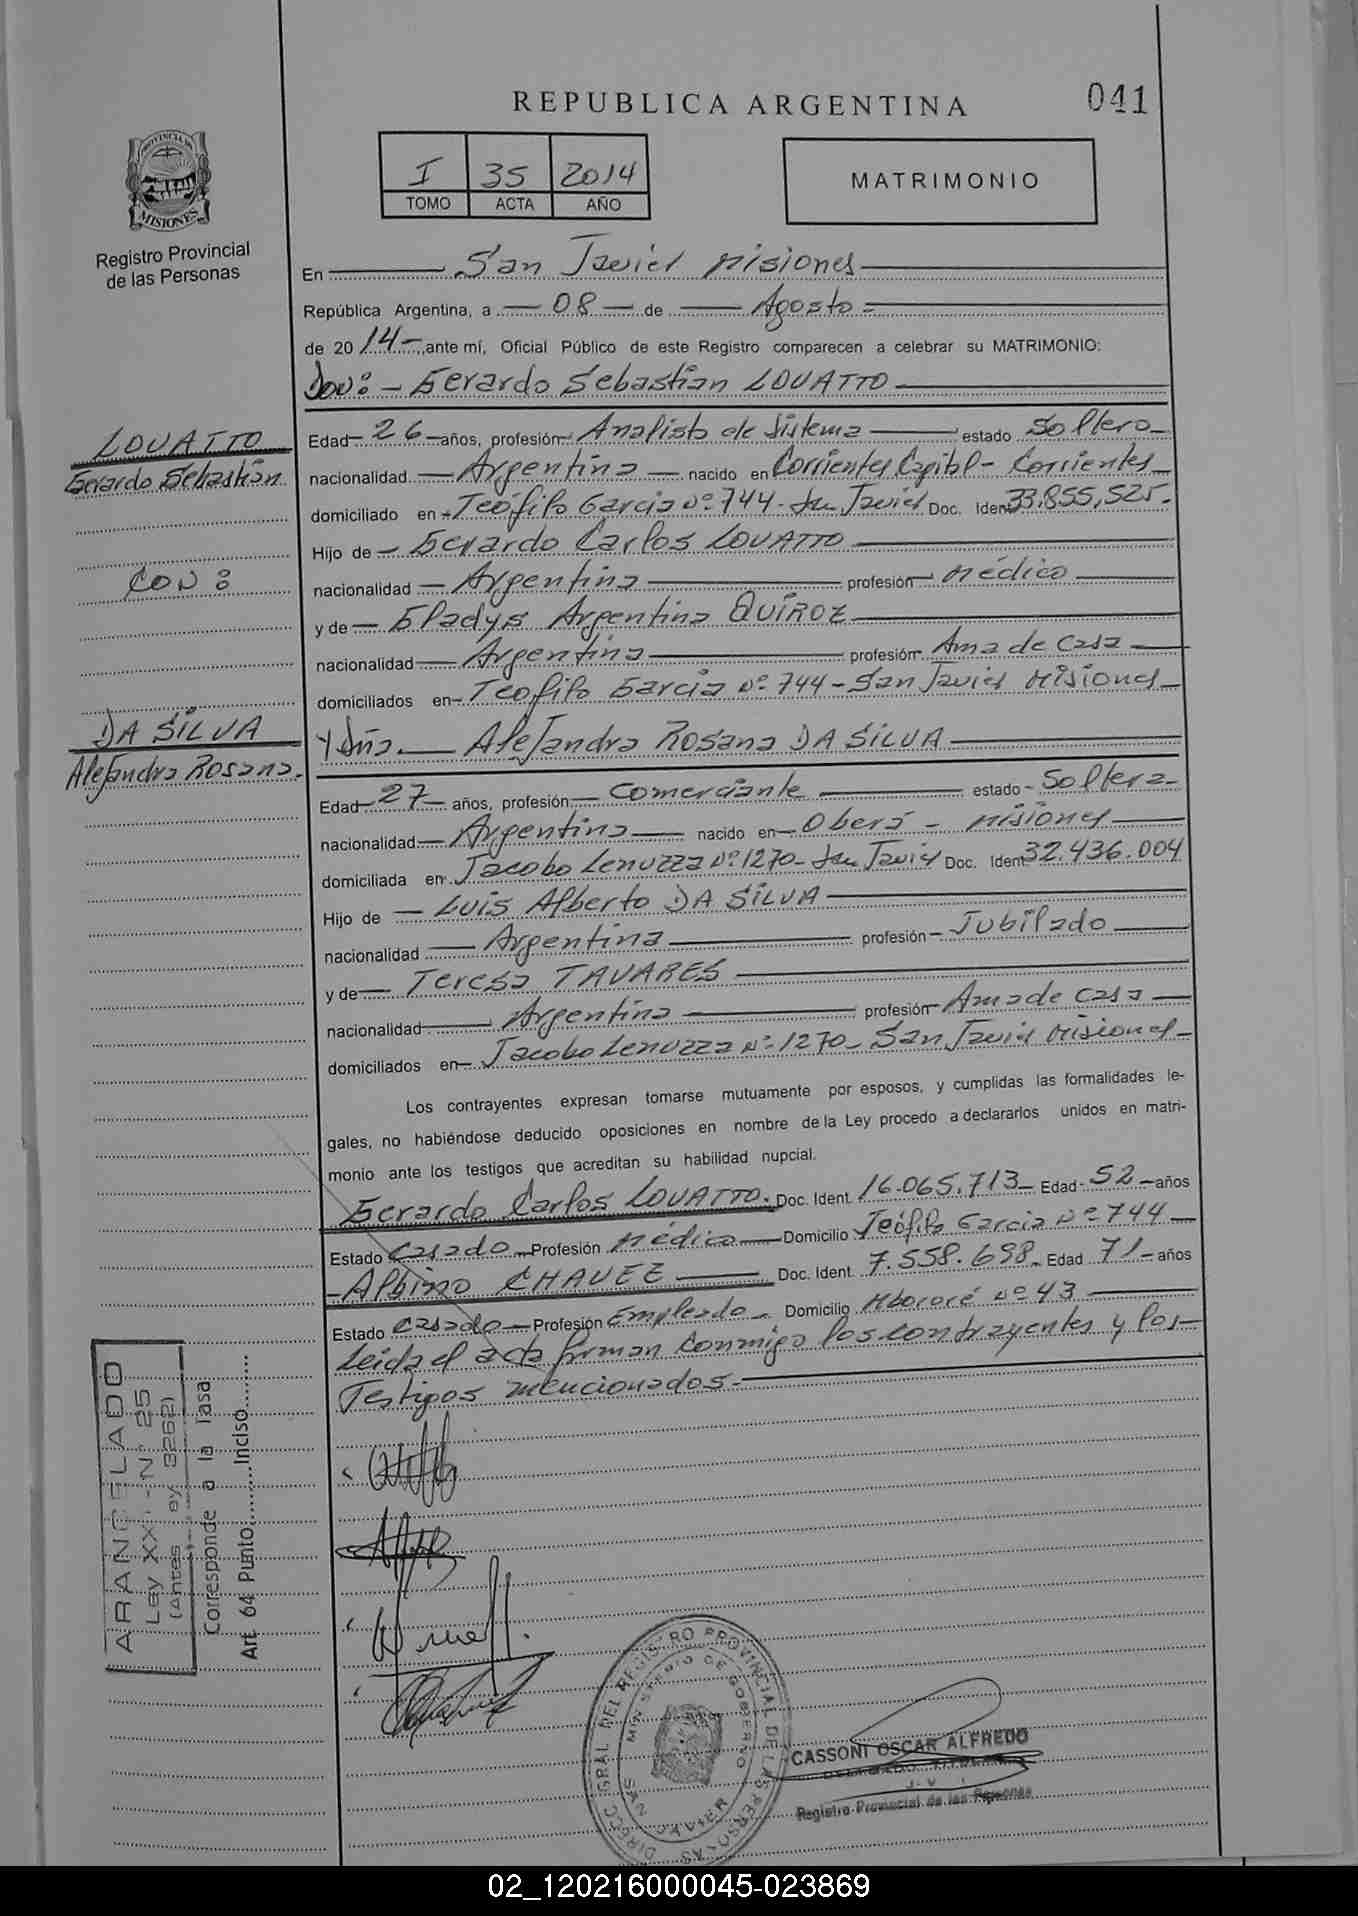 REPUBLICA ARGENTINA
041
PROVINCIA DE
MISIONES
Registro Provincial
de las Personas
I 35 2014
TOMO ACTA AÑO
MATRIMONIO
En San Javier Misiones
República Argentina, a 08 de Agosto
de 2014, ante mí, Oficial Público de este Registro comparecen a celebrar su MATRIMONIO:
Don: Gerardo Sebastián LOVATTO
LOVATTO
Gerardo Sebastián
CON:
DA SILVA
Alejandra Rosana.
Edad 26 años, profesión Analista de Sistema estado Soltero
nacionalidad Argentina nacido en Corrientes Capital - Corrientes
domiciliado en Teófilo Garcia Nº 744 - San Javier Doc. Ident 33.855.525.
Hijo de Gerardo Carlos LOVATTO
nacionalidad Argentina profesión Médico
y de Gladys Argentina QUÍROZ
nacionalidad Argentina profesión Ama de Casa
domiciliados en Teófilo Garcia Nº 744 - San Javier Misiones
Y Dña. Alejandra Rosana DA SILVA
Edad 27 años, profesión Comerciante estado Soltera
nacionalidad Argentina nacido en Oberá - Misiones
domiciliada en Jacobo Lenuzza Nº 1270 - San Javier Doc. Ident 32.436.004
Hijo de Luis Alberto DA SILVA
nacionalidad Argentina profesión Jubilado
y de Teresa TAVARES
nacionalidad Argentina profesión Ama de Casa
domiciliados en Jacobo Lenuzza Nº 1270 - San Javier Misiones
Los contrayentes expresan tomarse mutuamente por esposos, y cumplidas las formalidades le-
gales, no habiéndose deducido oposiciones en nombre de la Ley procedo a declararlos unidos en matri-
monio ante los testigos que acreditan su habilidad nupcial.
Gerardo Carlos LOVATTO. Doc. Ident. 16.065.713 Edad 52 años
Estado Casado Profesión Médico Domicilio Teófilo Garcia Nº 744
Albino CHAVEZ Doc. Ident. 7.558.698 Edad 71 años
Estado Casado Profesión Empleado Domicilio Mbororé Nº 43
Leida el acta firman conmigo los contrayentes y los
Testigos mencionados.
ARANCELADO
Ley XXI - Nº 25
(Antes Ley 3262)
Corresponde a la Tasa
Art. 64 Punto..........Inciso..........
DIRECC. GRAL. DEL REGISTRO PROVINCIAL DE LAS PERSONAS
MINISTERIO DE GOBIERNO
SAN JAVIER
CASSONI OSCAR ALFREDO
DELEGADO TITULAR
Registro Provincial de las Personas
02_120216000045-023869